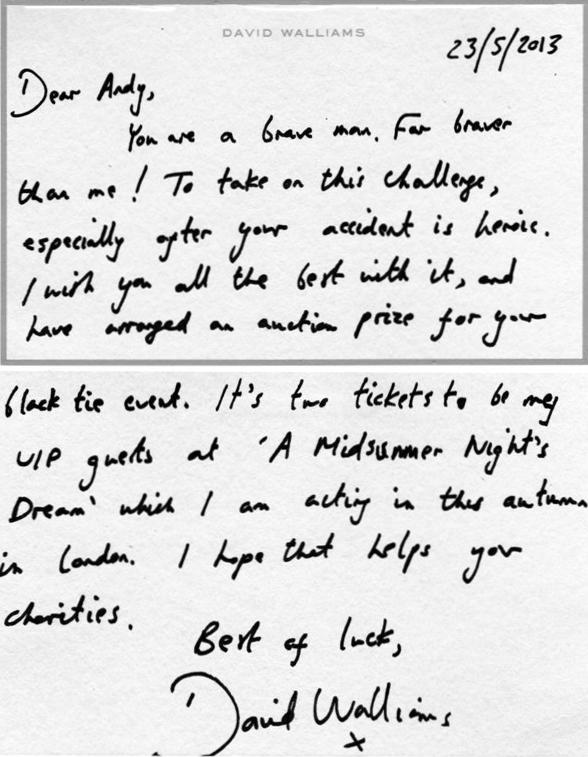 DAVID WALLIAMS
23/5/2013
Dear Andy,
You are a brave man. Far braver
than me! To take on this challenge,
especially after your accident is heroic.
I wish you all the best with it, and
have arranged an auction prize for your
black tie event. It's two tickets to be my
VIP guests at 'A Midsummer Night's
Dream' which I am acting in this autumn
in London. I hope that helps your
charities.
Best of luck,
David Walliams
x